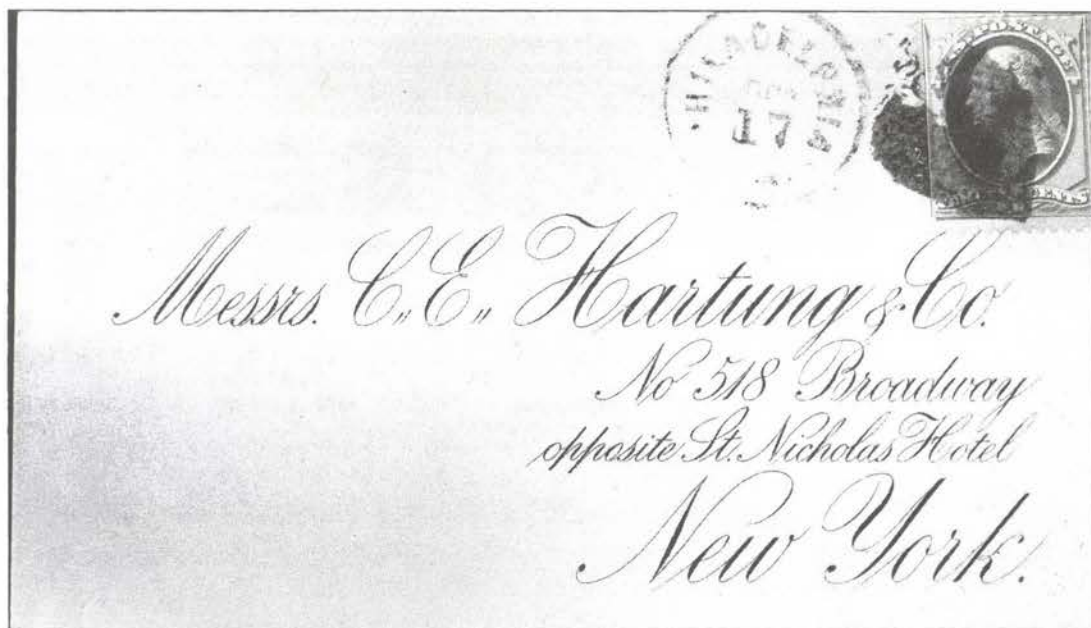 PHILADELPHIA
17
Messrs. C.,E., Hartung & Co.
No 518 Broadway
opposite St. Nicholas Hotel
New York.